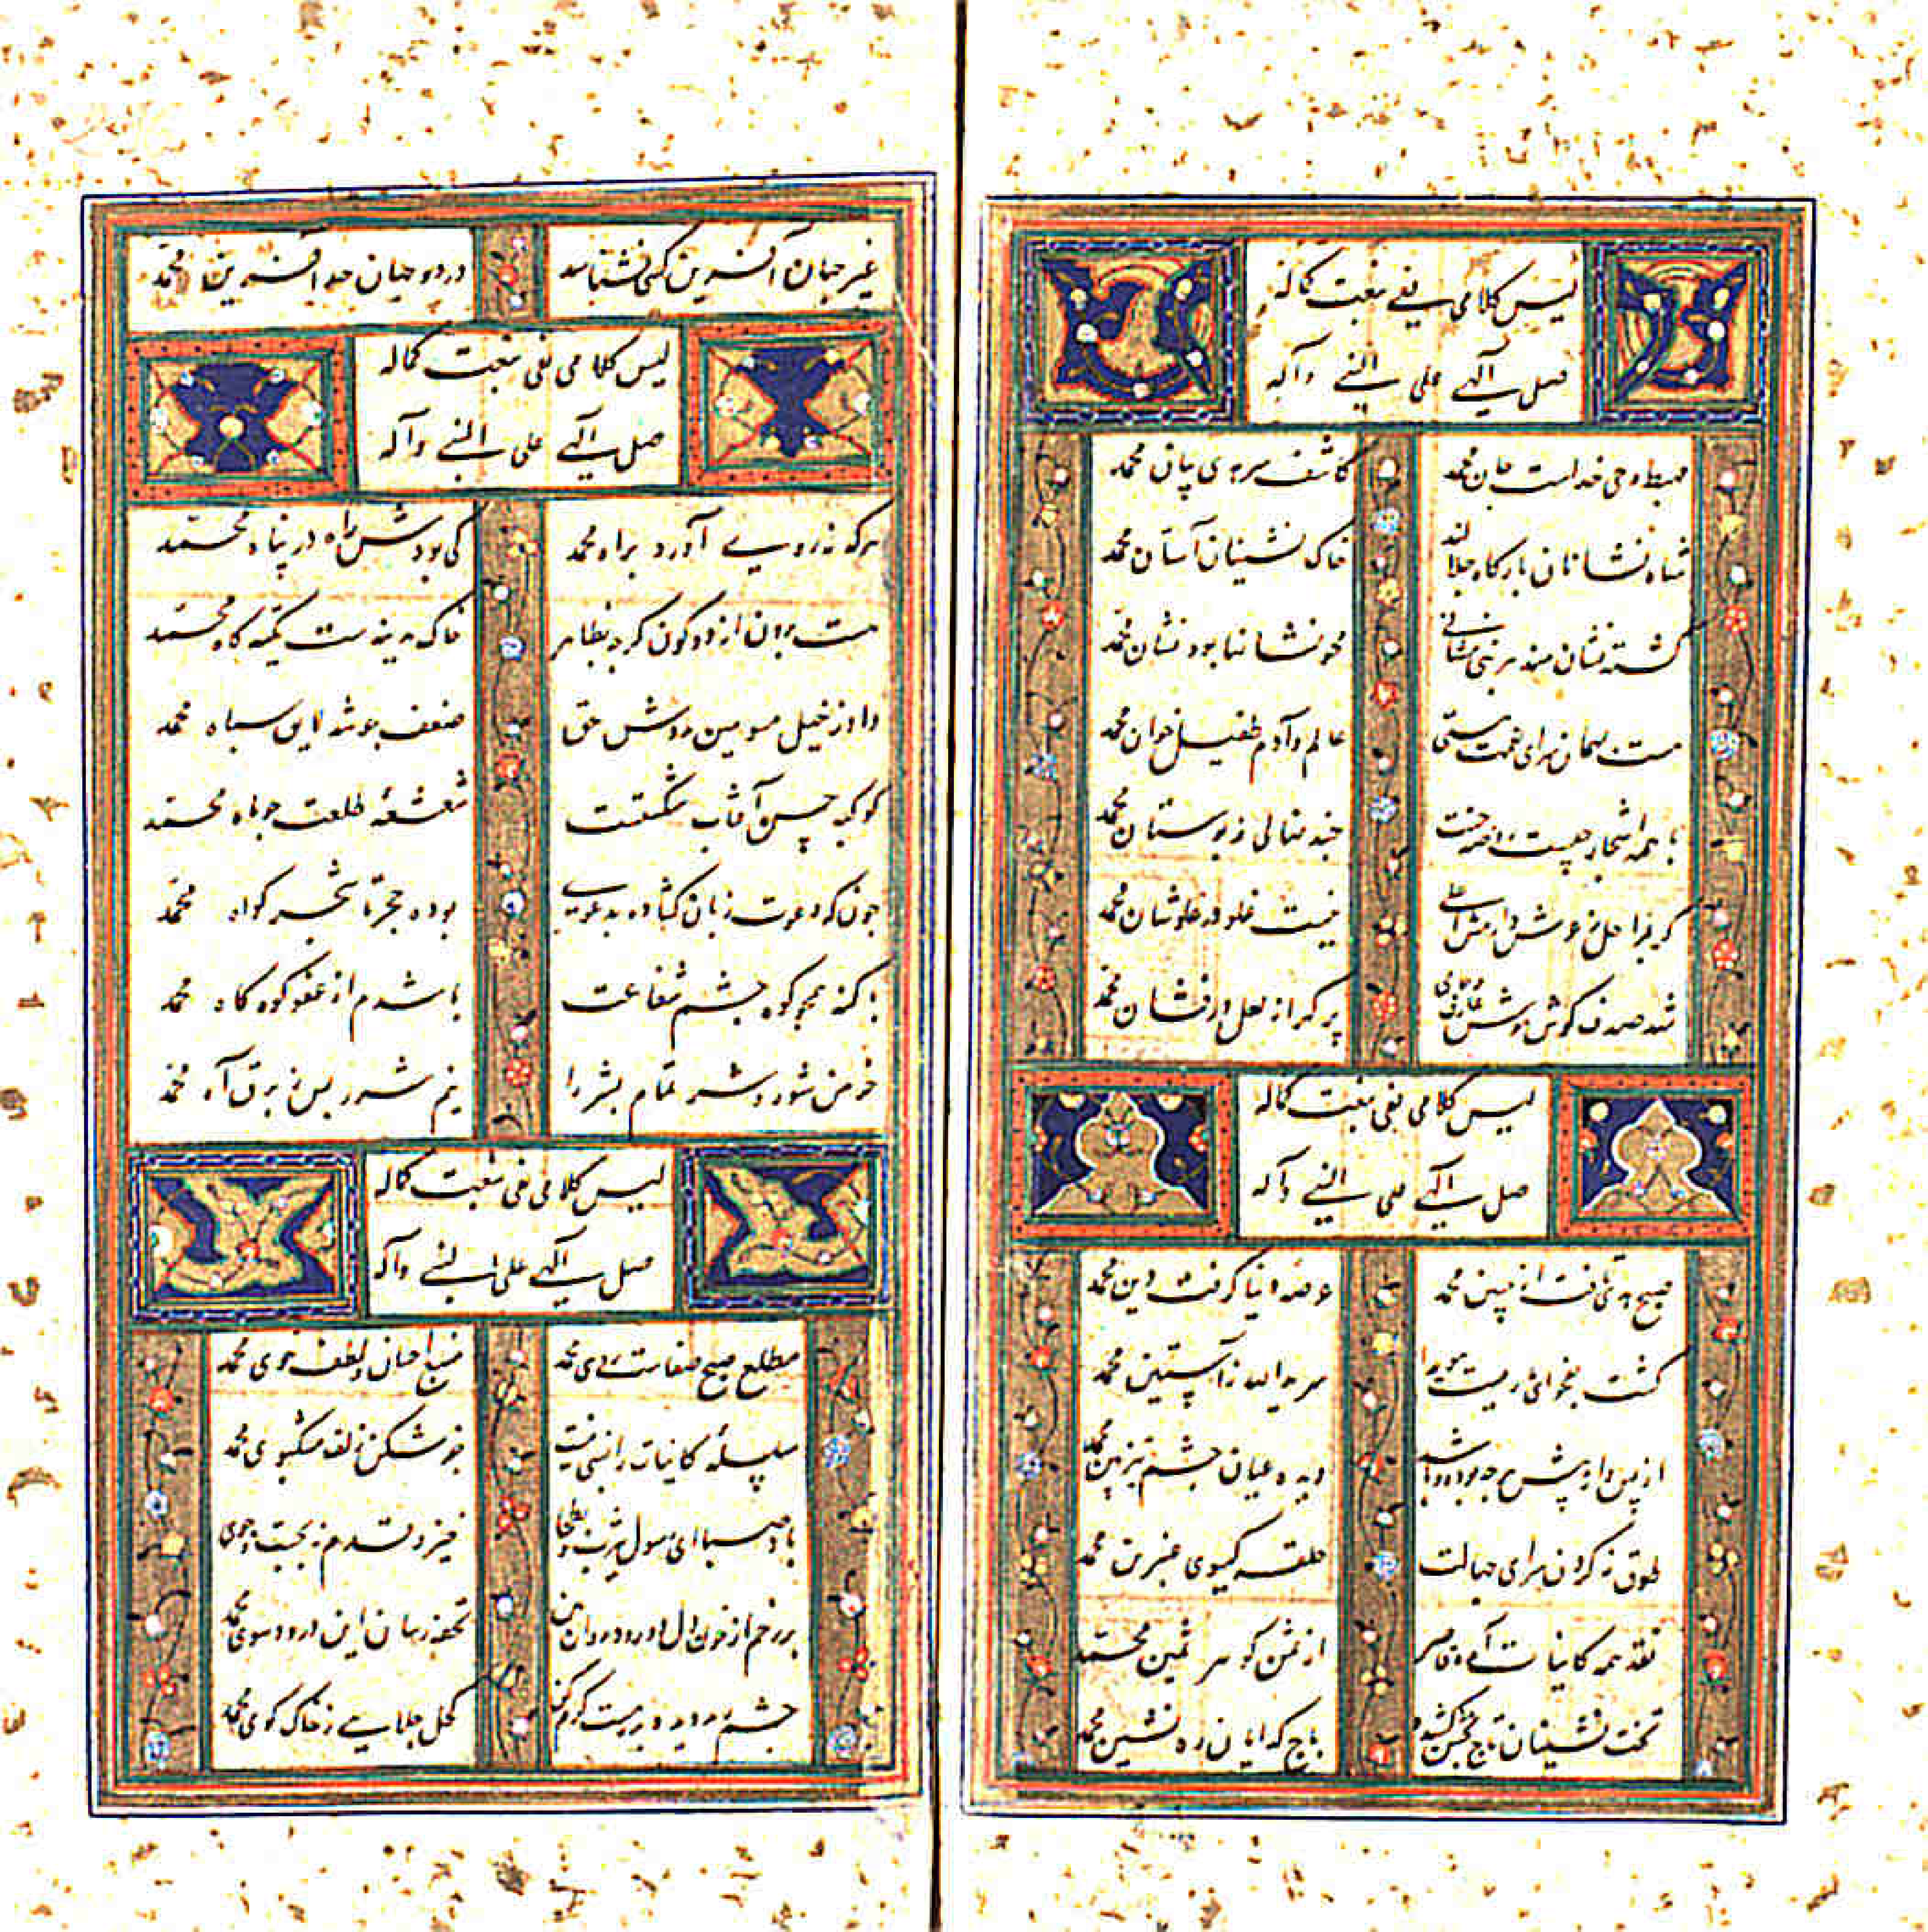 لیس کلامی یفی بنعت کماله
صل الهی علی النبی وآله
مهبط وحی خداست جان محمد
کاشف سر هدی بیان محمد
شاه نشانان بارگاه جلالند
خاک نشینان آستان محمد
کشته نشان مند هر نبی بنشانی
محو نشانها بود نشان محمد
هست مهمان سرای نعمت هستی
عالم و آدم طفیل خوان محمد
با همه اشجار چیست روضه جنت
چند نهالی ز بوستان محمد
نیست علو شان محمد
شد صدف کوش هوش
پر کهر از لعل درفشان محمد
لیس کلامی یفی بنعت کماله
صل الهی علی النبی وآله
صبح هدی تافت از جبین محمد
عرصه دنیا کرفت دین محمد
کشت بفحوای ما رمیت هویدا
سر ید الله ز آستین محمد
از پس و از پیش هر چه بود و باشد
دیده عیان چشم تیزبین محمد
طوق ز کردن برای جهالت
حلقه کیسوی عنبرین محمد
نقد همه کاینات آمده قاصر
از ثمن کوهر ثمین محمد
تخت نشینان تاج بخش کشیدند
باج کدایان ره نشین محمد
غیر جهان آفرین کسی نشناسد
در دو جهان حد آفرین محمد
لیس کلامی یفی بنعت کماله
صل الهی علی النبی وآله
هر که نه روی آورد براه محمد
کی بودش راه در پناه محمد
هست برون از دو کون کرچه بظاهر
خاک مدینه ست تکیه کاه محمد
داد ز خیل مسومین مددش حق
ضعف چو شد سپاه محمد
کوکبه حسن آفتاب شکستست
شعشعه طلعت چو ماه محمد
چون که دعوت زبان کشاده بدعوی
بوده حجر تا شجر کواه محمد
با کنه همچو کوه چشم شفاعت
باشدم از عفو کوه کاه محمد
خرمن شور و شر تمام بشر را
نیم شرر بس ز برق آه محمد
لیس کلامی یفی بنعت کماله
صل الهی علی النبی وآله
مطلع صبح صفاست روی محمد
منبع احسان و لطف خوی محمد
سلسله کاینات را نسبی نیست
جز شکن زلف مشکبوی محمد
باد صبا ای رسول یثرب و بطحا
خیز و قدم نه بجست و جوی محمد
تحفه رسان این درود سوی محمد
چشم
کحل جلایی ز خاک کوی محمد